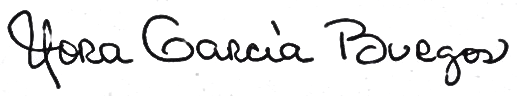 Yora García Burgos